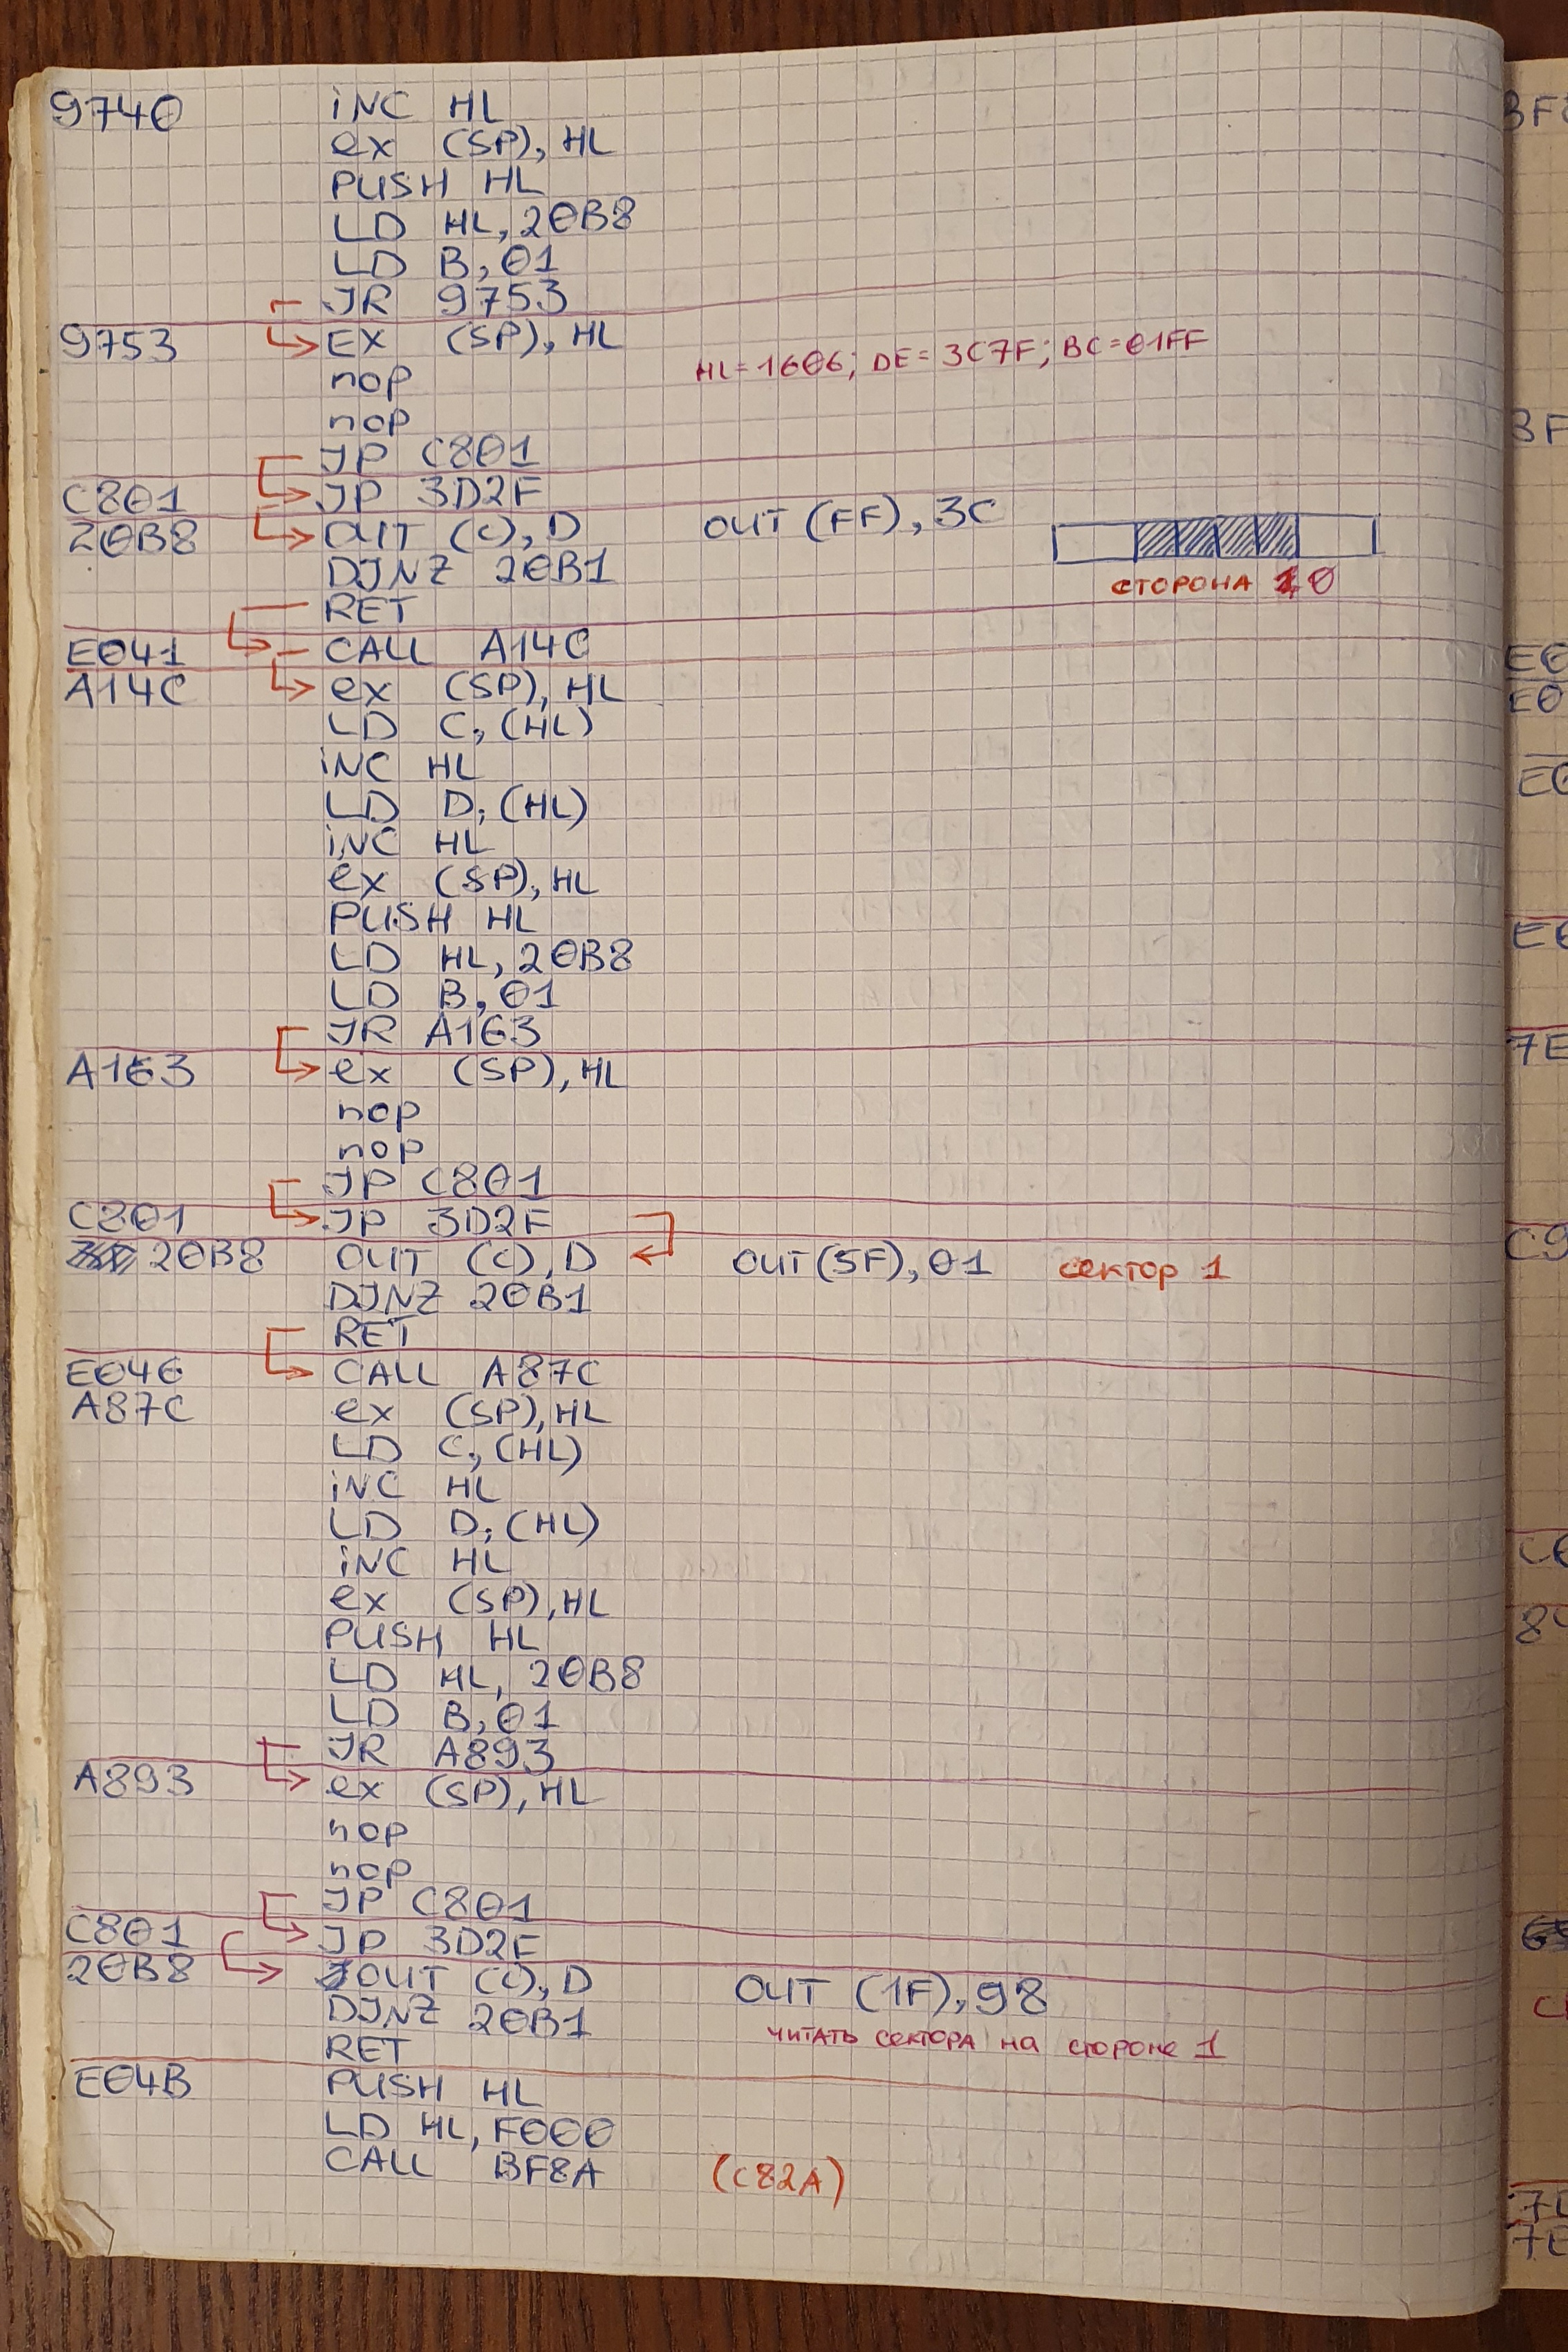 9740 INC HL
ex (SP), HL
PUSH HL
LD HL, 20B8
LD B, 01
JR 9753
9753 EX (SP), HL
nop HL=1606; DE=3C7F; BC=01FF
nop
JP C801
C801 JP 3D2F
20B8 OUT (C), D OUT (FF), 3C
DJNZ 20B1 СТОРОНА 0
RET
E041 CALL A14C
A14C ex (SP), HL
LD C, (HL)
INC HL
LD D, (HL)
INC HL
ex (SP), HL
PUSH HL
LD HL, 20B8
LD B, 01
JR A163
A163 ex (SP), HL
nop
nop
JP C801
C801 JP 3D2F
20B8 OUT (C), D OUT (5F), 01 сектор 1
DJNZ 20B1
RET
E046 CALL A87C
A87C ex (SP), HL
LD C, (HL)
INC HL
LD D, (HL)
INC HL
ex (SP), HL
PUSH HL
LD HL, 20B8
LD B, 01
JR A893
A893 ex (SP), HL
nop
nop
JP C801
C801 JP 3D2F
20B8 OUT (C), D OUT (1F), 98
DJNZ 20B1 читать сектора на стороне 1
RET
E04B PUSH HL
LD HL, F000
CALL BF8A (C82A)